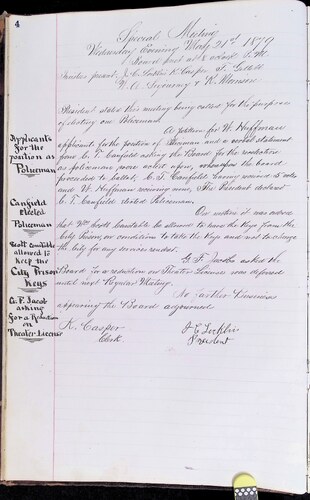 4
Special Meeting
Wednesday Evening May 21st 1879
half past
Trustees present J. E. Locklin K. Casper
President states this meeting being called for the purpose
of electing one Policeman
A petition for W. Huffman
applicant for the position of Policeman and a verbal statement
from C. T. Canfield asking the Board for the
as policeman were now whereupon the board
proceeded to ballot; C. T. Canfield having received 3 votes
and W. Huffman receiving one, The President declared
C. T. Canfield elected Policeman.
On motion it was ordered
that Wm Scott Constable be allowed to have the Keys from the
City Prison, on condition to take the Keys and not to charge
the City for any services rendered.
G. F. Jacobs asked the
Board for a reduction on Theater License was deferred
until next Regular Meeting.
No further Business
appearing the Board adjourned
K. Casper
Clerk
J. E. Locklin
President
Applicants
for the
position as
Policeman
Canfield
Elected
Policeman
Scott Constable
allowed to
keep the
City Prison
Keys
G. F. Jacob
asking
for a Reduction
on
Theater License